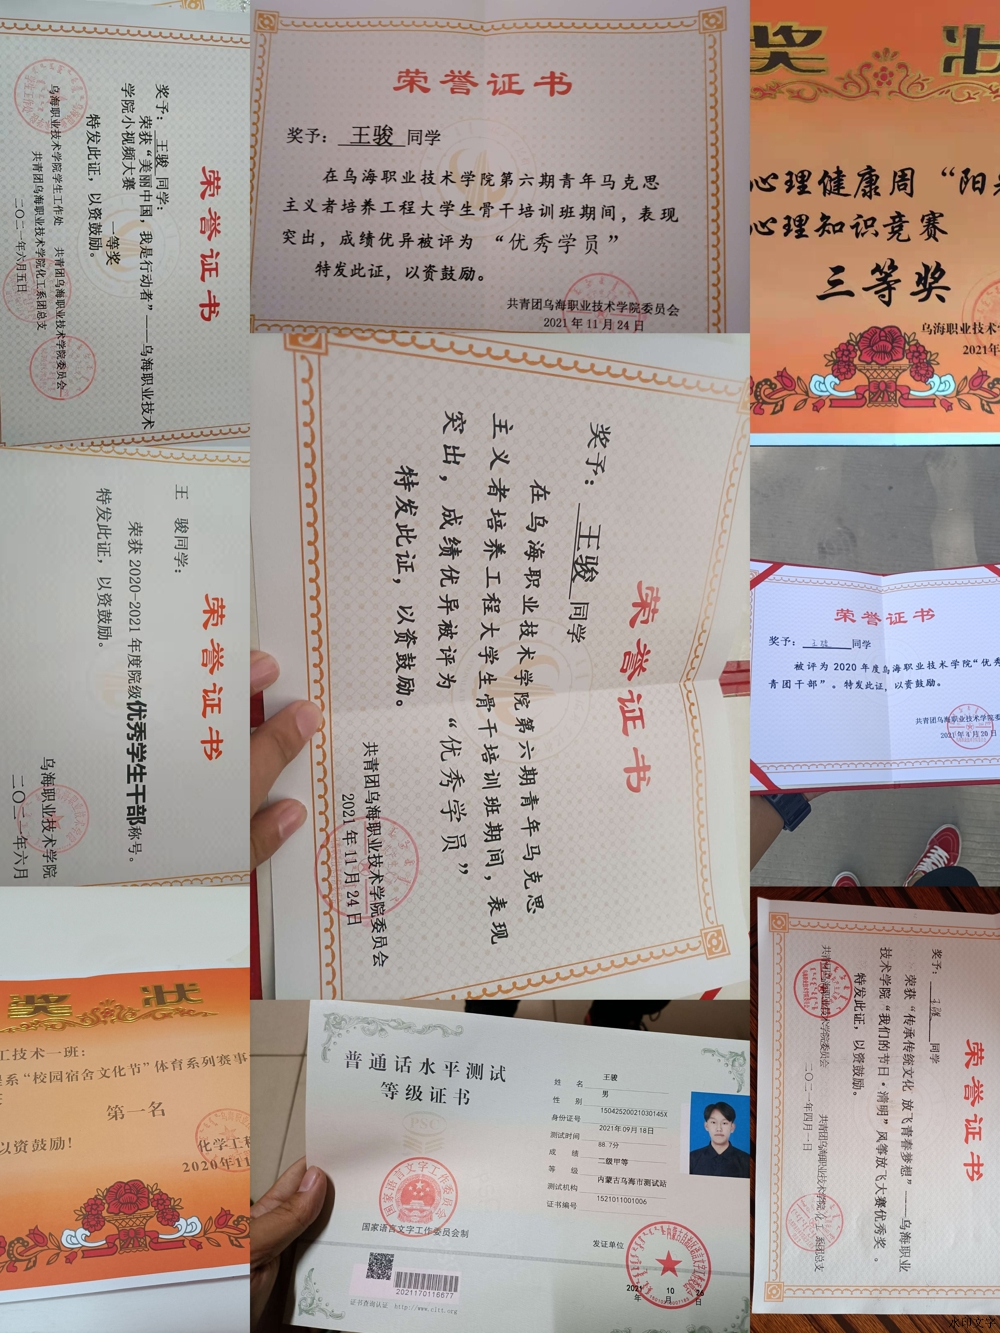 荣誉证书
奖予：王骏 同学：
荣获“美丽中国，我是行动者”——乌海职业技术
学院小视频大赛
一等奖
特发此证，以资鼓励。
乌海职业技术学院学生工作处 共青团乌海职业技术学院委员会
共青团乌海职业技术学院化工系团总支
二〇二一年六月五日
荣誉证书
奖予：王骏 同学
在乌海职业技术学院第六期青年马克思
主义者培养工程大学生骨干培训班期间，表现
突出，成绩优异被评为 “优秀学员”
特发此证，以资鼓励。
共青团乌海职业技术学院委员会
2021 年 11 月 24 日
奖状
心理健康周“阳
心理知识竞赛
三等奖
乌海职业技术
2021年
荣誉证书
王 骏同学：
荣获 2020-2021 年度院级优秀学生干部称号。
特发此证，以资鼓励。
乌海职业技术学院
二〇二一年六月
荣誉证书
奖予：王骏 同学
在乌海职业技术学院第六期青年马克思
主义者培养工程大学生骨干培训班期间，表现
突出，成绩优异被评为 “优秀学员”
特发此证，以资鼓励。
共青团乌海职业技术学院委员会
2021 年 11 月 24 日
荣誉证书
奖予：王骏 同学
被评为 2020 年度乌海职业技术学院“优秀
青团干部”。特发此证，以资鼓励。
共青团乌海职业技术学院委
2021 年 4 月 26 日
奖状
工技术一班：
系“校园宿舍文化节”体育系列赛事
第一名
以资鼓励！
化学工程
2020年11
普通话水平测试
等级证书
国家语言文字工作委员会制
2021170116677
证书查询认证 http://www.cltt.org
姓 名 王骏
性 别 男
身份证号 15042520021030145X
测试时间 2021年09月18日
成 绩 88.7分
等 级 二级甲等
测试机构 内蒙古乌海市测试站
证书编号 1521011001006
发证单位
2021 年 10 月 26 日
荣誉证书
奖予：王骏 同学
荣获“传承传统文化 放飞青春梦想”——乌海职业
技术学院“我们的节日·清明”风筝放飞大赛优秀奖。
特发此证，以资鼓励。
共青团乌海职业技术学院委员会 共青团乌海职业技术学院化工系团总支
二〇二一年四月一日
水印文字